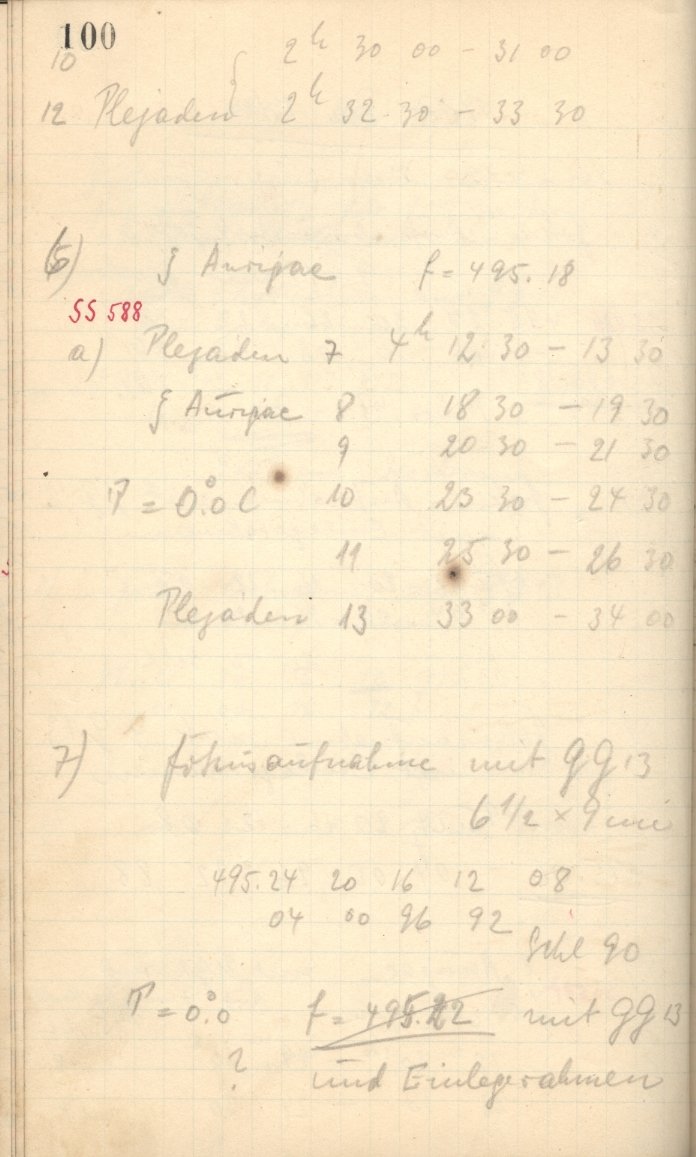 100
10 { 2h 30 00 - 31 00
12 Plejaden 2h 32 30 - 33 30
6) ξ Aurigae f = 495.18
SS 588
a) Plejaden 7 4h 12 30 - 13 30
ξ Aurigae 8 18 30 - 19 30
9 20 30 - 21 30
T = 0.°0 C 10 23 30 - 24 30
11 25 30 - 26 30
Plejaden 13 33 00 - 34 00
7) Fokusaufnahme mit GG 13
6 1/2 × 9
495.24 20 16 12 08
04 00 96 92
90
T = 0.°0 f = 495.22 mit GG 13
? und Einlegerahmen